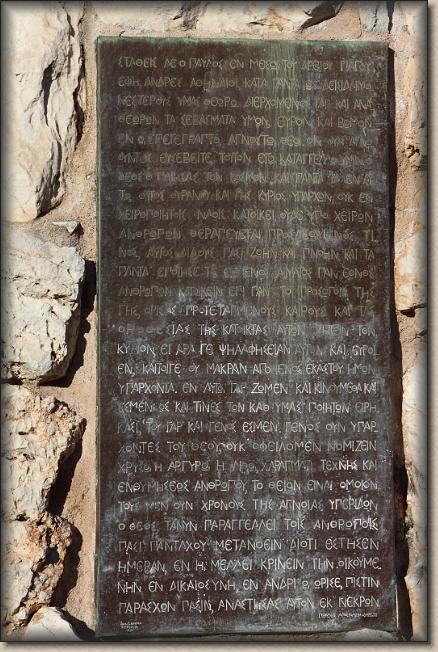 ΣΤΑΘΕΙΣ ΔΕ Ο ΠΑΥΛΟΣ ΕΝ ΜΕΣΩ ΤΟΥ ΑΡΕΙΟΥ ΠΑΓΟΥ
ΕΦΗ, ΑΝΔΡΕΣ ΑΘΗΝΑΙΟΙ, ΚΑΤΑ ΠΑΝΤΑ ΩΣ ΔΕΙΣΙΔΑΙΜΟ
ΝΕΣΤΕΡΟΥΣ ΥΜΑΣ ΘΕΩΡΩ. ΔΙΕΡΧΟΜΕΝΟΣ ΓΑΡ ΚΑΙ ΑΝΑ
ΘΕΩΡΩΝ ΤΑ ΣΕΒΑΣΜΑΤΑ ΥΜΩΝ, ΕΥΡΟΝ ΚΑΙ ΒΩΜΟΝ
ΕΝ Ω ΕΠΕΓΕΓΡΑΠΤΟ, ΑΓΝΩΣΤΩ ΘΕΩ. ΟΝ ΟΥΝ ΑΓΝΟ
ΟΥΝΤΕΣ ΕΥΣΕΒΕΙΤΕ, ΤΟΥΤΟΝ ΕΓΩ ΚΑΤΑΓΓΕΛΛΩ ΥΜΙΝ. Ο
ΘΕΟΣ Ο ΠΟΙΗΣΑΣ ΤΟΝ ΚΟΣΜΟΝ ΚΑΙ ΠΑΝΤΑ ΤΑ ΕΝ ΑΥ
ΤΩ, ΟΥΤΟΣ ΟΥΡΑΝΟΥ ΚΑΙ ΓΗΣ ΚΥΡΙΟΣ ΥΠΑΡΧΩΝ, ΟΥΚ ΕΝ
ΧΕΙΡΟΠΟΙΗΤΟΙΣ ΝΑΟΙΣ ΚΑΤΟΙΚΕΙ ΟΥΔΕ ΥΠΟ ΧΕΙΡΩΝ
ΑΝΘΡΩΠΩΝ ΘΕΡΑΠΕΥΕΤΑΙ ΠΡΟΣΔΕΟΜΕΝΟΣ ΤΙ
ΝΟΣ, ΑΥΤΟΣ ΔΙΔΟΥΣ ΠΑΣΙ ΖΩΗΝ ΚΑΙ ΠΝΟΗΝ ΚΑΙ ΤΑ
ΠΑΝΤΑ ΕΠΟΙΗΣΕ ΤΕ ΕΞ ΕΝΟΣ ΑΙΜΑΤΟΣ ΠΑΝ ΕΘΝΟΣ
ΑΝΘΡΩΠΩΝ ΚΑΤΟΙΚΕΙΝ ΕΠΙ ΠΑΝ ΤΟ ΠΡΟΣΩΠΟΝ ΤΗΣ
ΓΗΣ, ΟΡΙΣΑΣ ΠΡΟΤΕΤΑΓΜΕΝΟΥΣ ΚΑΙΡΟΥΣ ΚΑΙ ΤΑΣ
ΟΡΟΘΕΣΙΑΣ ΤΗΣ ΚΑΤΟΙΚΙΑΣ ΑΥΤΩΝ ΖΗΤΕΙΝ ΤΟΝ
ΚΥΡΙΟΝ, ΕΙ ΑΡΑ ΓΕ ΨΗΛΑΦΗΣΕΙΑΝ ΑΥΤΟΝ ΚΑΙ ΕΥΡΟΙ
ΕΝ, ΚΑΙΤΟΙΓΕ ΟΥ ΜΑΚΡΑΝ ΑΠΟ ΕΝΟΣ ΕΚΑΣΤΟΥ ΗΜΩΝ
ΥΠΑΡΧΟΝΤΑ. ΕΝ ΑΥΤΩ ΓΑΡ ΖΩΜΕΝ ΚΑΙ ΚΙΝΟΥΜΕΘΑ ΚΑΙ
ΕΣΜΕΝ, ΩΣ ΚΑΙ ΤΙΝΕΣ ΤΩΝ ΚΑΘ ΥΜΑΣ ΠΟΙΗΤΩΝ ΕΙΡΗ
ΚΑΣΙ, ΤΟΥ ΓΑΡ ΚΑΙ ΓΕΝΟΣ ΕΣΜΕΝ. ΓΕΝΟΣ ΟΥΝ ΥΠΑΡ
ΧΟΝΤΕΣ ΤΟΥ ΘΕΟΥ, ΟΥΚ ΟΦΕΙΛΟΜΕΝ ΝΟΜΙΖΕΙΝ
ΧΡΥΣΩ Η ΑΡΓΥΡΩ Η ΛΙΘΩ, ΧΑΡΑΓΜΑΤΙ ΤΕΧΝΗΣ ΚΑΙ
ΕΝΘΥΜΗΣΕΩΣ ΑΝΘΡΩΠΟΥ, ΤΟ ΘΕΙΟΝ ΕΙΝΑΙ ΟΜΟΙΟΝ.
ΤΟΥΣ ΜΕΝ ΟΥΝ ΧΡΟΝΟΥΣ ΤΗΣ ΑΓΝΟΙΑΣ ΥΠΕΡΙΔΩΝ
Ο ΘΕΟΣ ΤΑΝΥΝ ΠΑΡΑΓΓΕΛΛΕΙ ΤΟΙΣ ΑΝΘΡΩΠΟΙΣ
ΠΑΣΙ ΠΑΝΤΑΧΟΥ ΜΕΤΑΝΟΕΙΝ ΔΙΟΤΙ ΕΣΤΗΣΕΝ
ΗΜΕΡΑΝ, ΕΝ Η ΜΕΛΛΕΙ ΚΡΙΝΕΙΝ ΤΗΝ ΟΙΚΟΥΜΕ
ΝΗΝ ΕΝ ΔΙΚΑΙΟΣΥΝΗ, ΕΝ ΑΝΔΡΙ Ω ΩΡΙΣΕ, ΠΙΣΤΙΝ
ΠΑΡΑΣΧΩΝ ΠΑΣΙΝ, ΑΝΑΣΤΗΣΑΣ ΑΥΤΟΝ ΕΚ ΝΕΚΡΩΝ